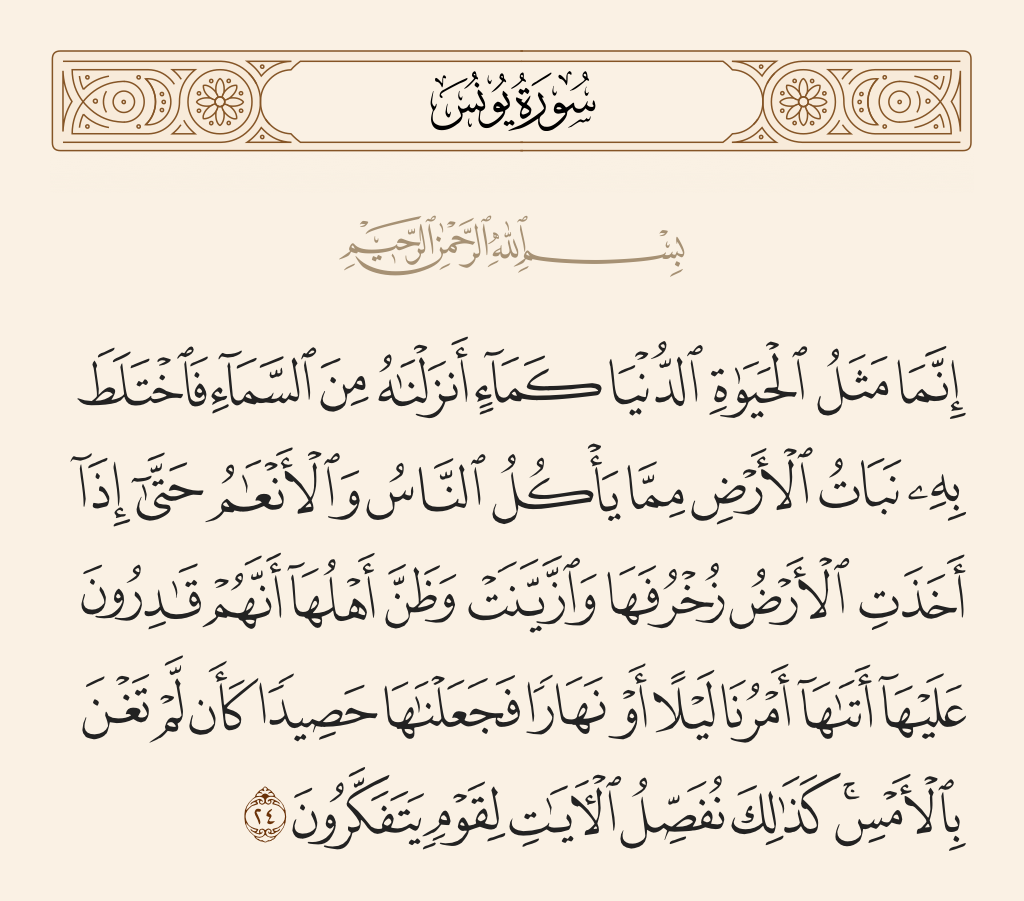 سُورَةُ يُونُسَ
بِسْمِ ٱللَّهِ ٱلرَّحْمَٰنِ ٱلرَّحِيمِ
إِنَّمَا مَثَلُ ٱلْحَيَوٰةِ ٱلدُّنْيَا كَمَآءٍ أَنزَلْنَٰهُ مِنَ ٱلسَّمَآءِ فَٱخْتَلَطَ
بِهِۦ نَبَاتُ ٱلْأَرْضِ مِمَّا يَأْكُلُ ٱلنَّاسُ وَٱلْأَنْعَٰمُ حَتَّىٰٓ إِذَآ
أَخَذَتِ ٱلْأَرْضُ زُخْرُفَهَا وَٱزَّيَّنَتْ وَظَنَّ أَهْلُهَآ أَنَّهُمْ قَٰدِرُونَ
عَلَيْهَآ أَتَىٰهَآ أَمْرُنَا لَيْلًا أَوْ نَهَارًا فَجَعَلْنَٰهَا حَصِيدًا كَأَن لَّمْ تَغْنَ
بِٱلْأَمْسِ ۚ كَذَٰلِكَ نُفَصِّلُ ٱلْـَٔايَٰتِ لِقَوْمٍ يَتَفَكَّرُونَ ٢٤